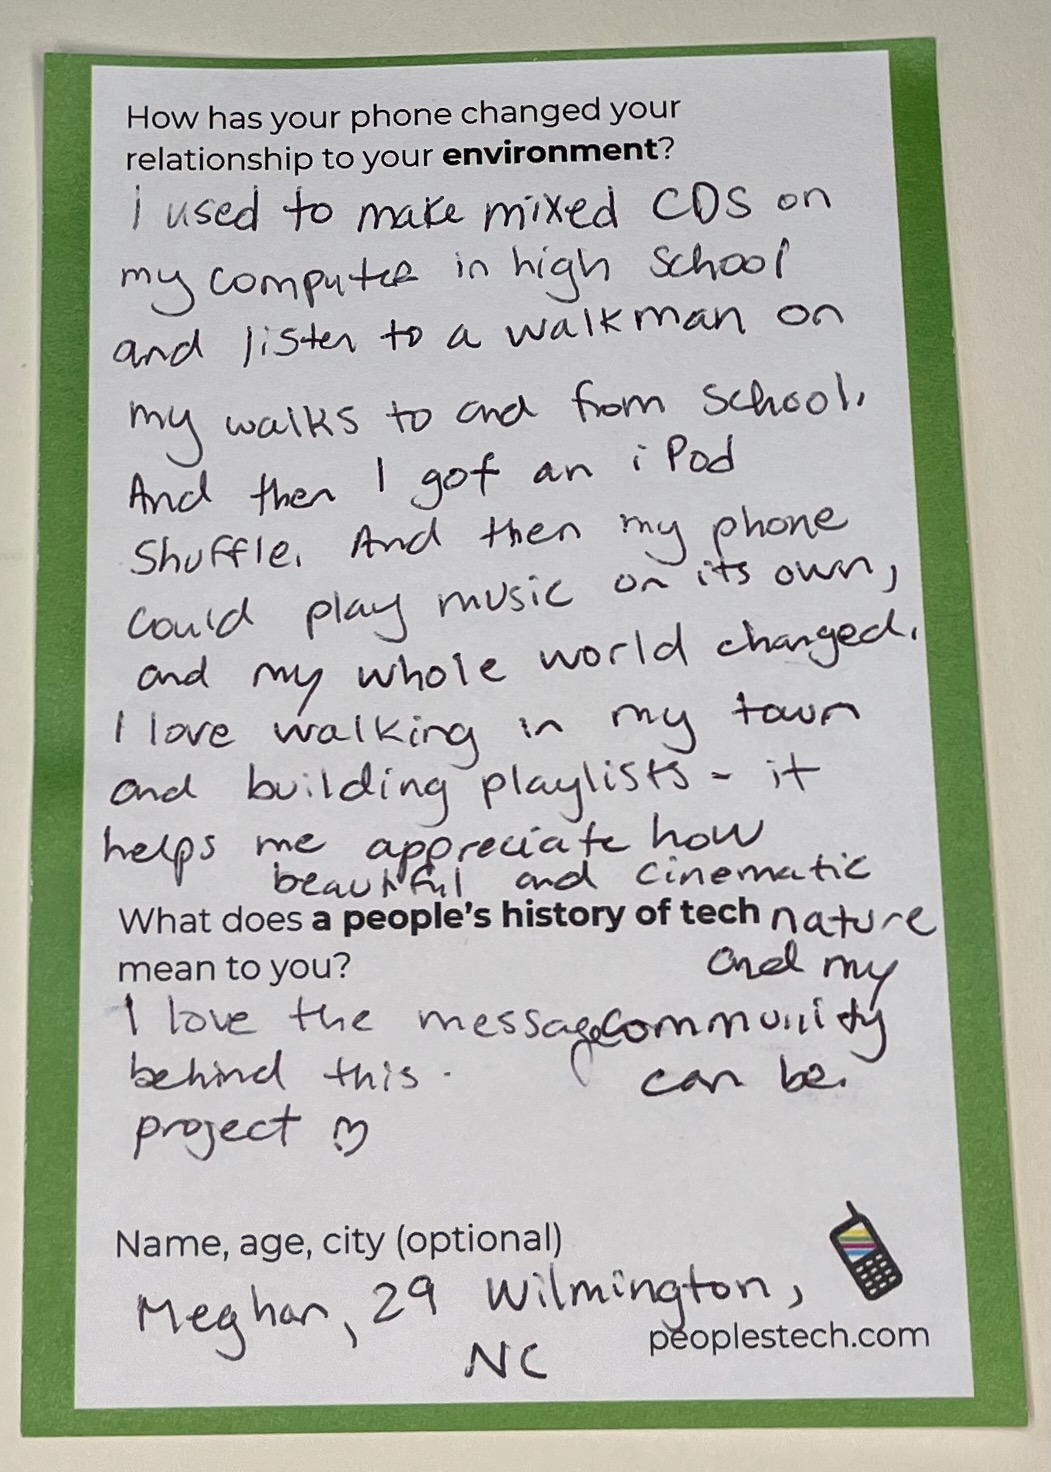 How has your phone changed your
relationship to your environment?
I used to make mixed CDS on
my computer in high school
and listen to a walkman on
my walks to and from school.
And then I got an iPod
Shuffle. And then my phone
could play music on its own,
and my whole world changed.
I love walking in my town
and building playlists - it
helps me appreciate how
beautiful and cinematic
nature
and my
community
can be.
What does a people's history of tech
mean to you?
I love the message
behind this
project
Name, age, city (optional)
Meghan, 29 Wilmington,
NC
peoplestech.com